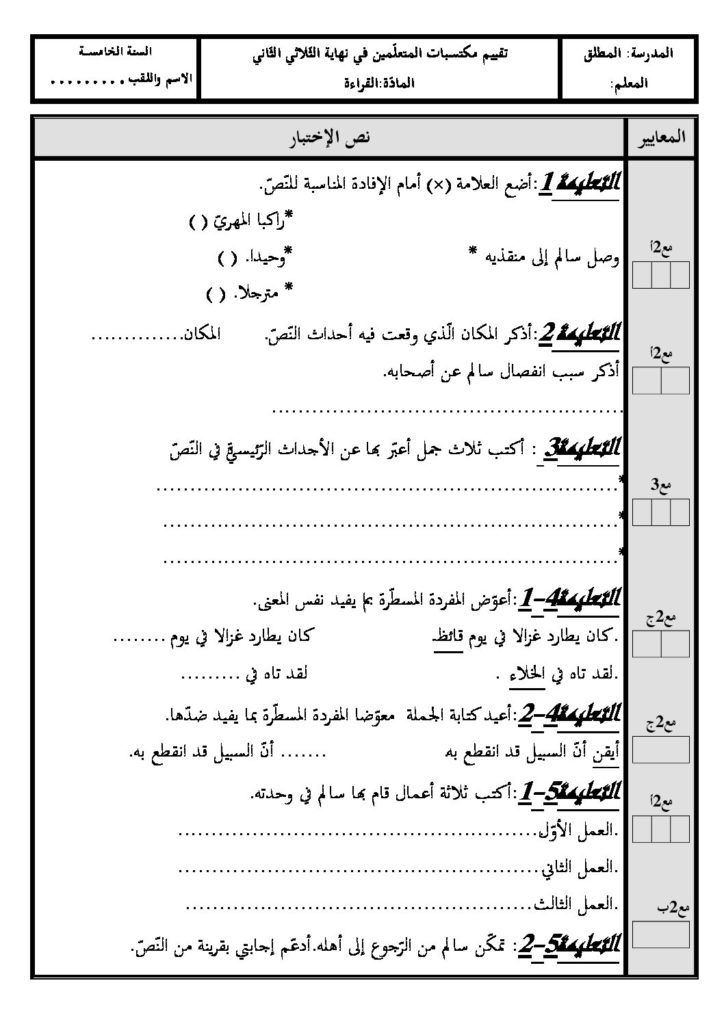 المدرسة: المطلق
المعلم:
تقييم مكتسبات المتعلّمين في نهاية الثلاثي الثاني
المادّة:القراءة
السنة الخامسـة
الاسم واللقب.........
المعايير
نص الإختبار
التعليمة 1:أضع العلامة (×) أمام الإفادة المناسبة للنّصّ.
*راكبا المهريّ ( )
وصل سالم إلى منقذيه * *وحيدا. ( )
* مترجلا. ( )
مع2أ
التعليمة 2:أذكر المكان الّذي وقعت فيه أحداث النّصّ. المكان..............
مع2أ
أذكر سبب انفصال سالم عن أصحابه.
.....................................................
التعليمة3 : أكتب ثلاث جمل أعبّر بها عن الأحداث الرّئيسيّة في النّصّ
مع3
*.....................................................................
*.....................................................................
*.....................................................................
التعليمة4-1:أعوّض المفردة المسطّرة بما يفيد نفس المعنى.
مع2ج
.كان يطارد غزالا في يوم قائظ. كان يطارد غزالا في يوم ........
.لقد تاه في الخلاء . لقد تاه في .........
التعليمة4-2:أعيد كتابة الجملة معوّضا المفردة المسطّرة بما يفيد ضدّها.
مع2ج
أيقن أنّ السبيل قد انقطع به. ....... أنّ السبيل قد انقطع به.
التعليمة5-1:أكتب ثلاثة أعمال قام بها سالم في وحدته.
مع2أ
.العمل الأوّل......................................................
.العمل الثاني......................................................
.العمل الثالث.....................................................
مع2ب
التعليمة5-2: تمكّن سالم من الرّجوع إلى أهله.أدعّم إجابتي بقرينة من النّصّ.